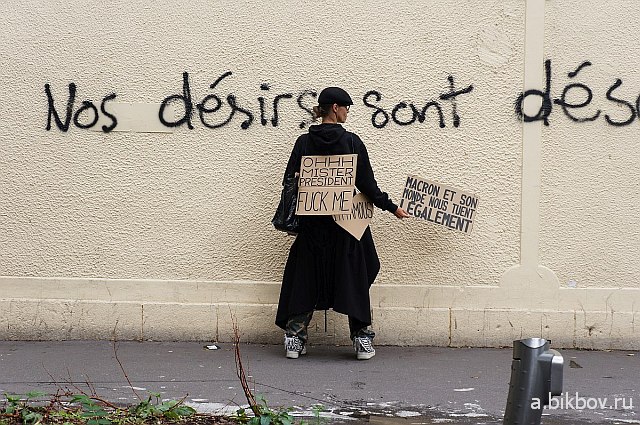 Nos désirs sont dés
OHHH
MISTER
PRESIDENT
FUCK ME
MACRON ET SON
MONDE NOUS TUENT
LÉGALEMENT
a.bikbov.ru